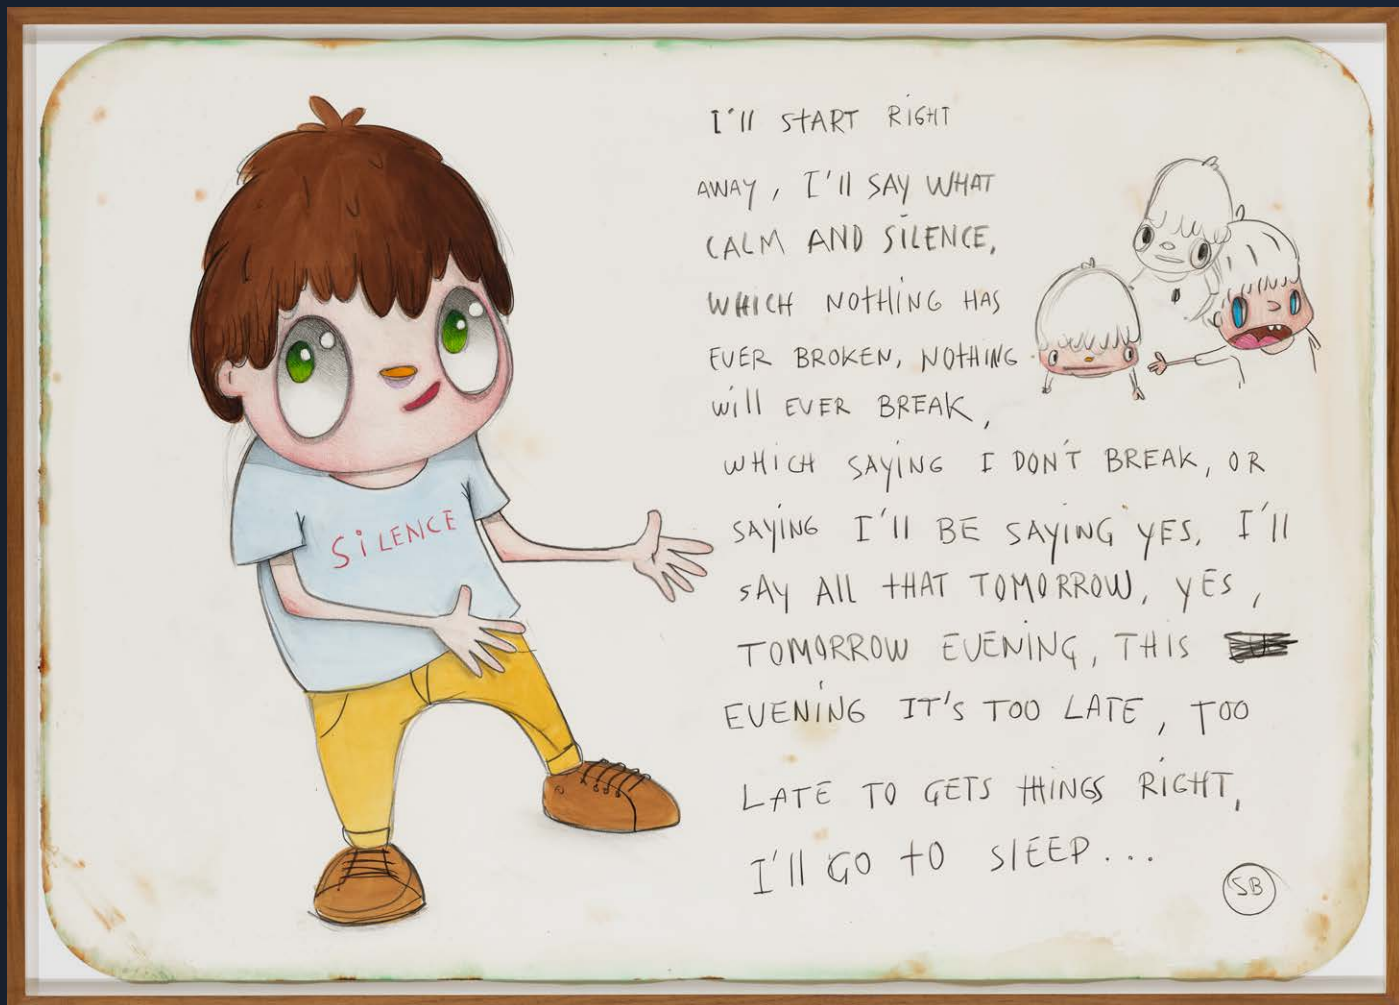 SiLENCE
I'll START RiGHT
AWAY, I'll SAY WHAT
CALM AND SiLENCE,
WHICH NOTHiNG HAS
EVER BROKEN, NOTHiNG
will EVER BREAK,
WHiCH SAYiNG I DON'T BREAK, OR
SAYiNG I'll BE SAYiNG YES, I'll
SAY All THAT TOMORROW, YES,
TOMORROW EVENiNG, THiS
EVENiNG IT'S TOO LATE, TOO
LATE TO GETS THiNGS RiGHT,
I'll GO TO SlEEP...
SB